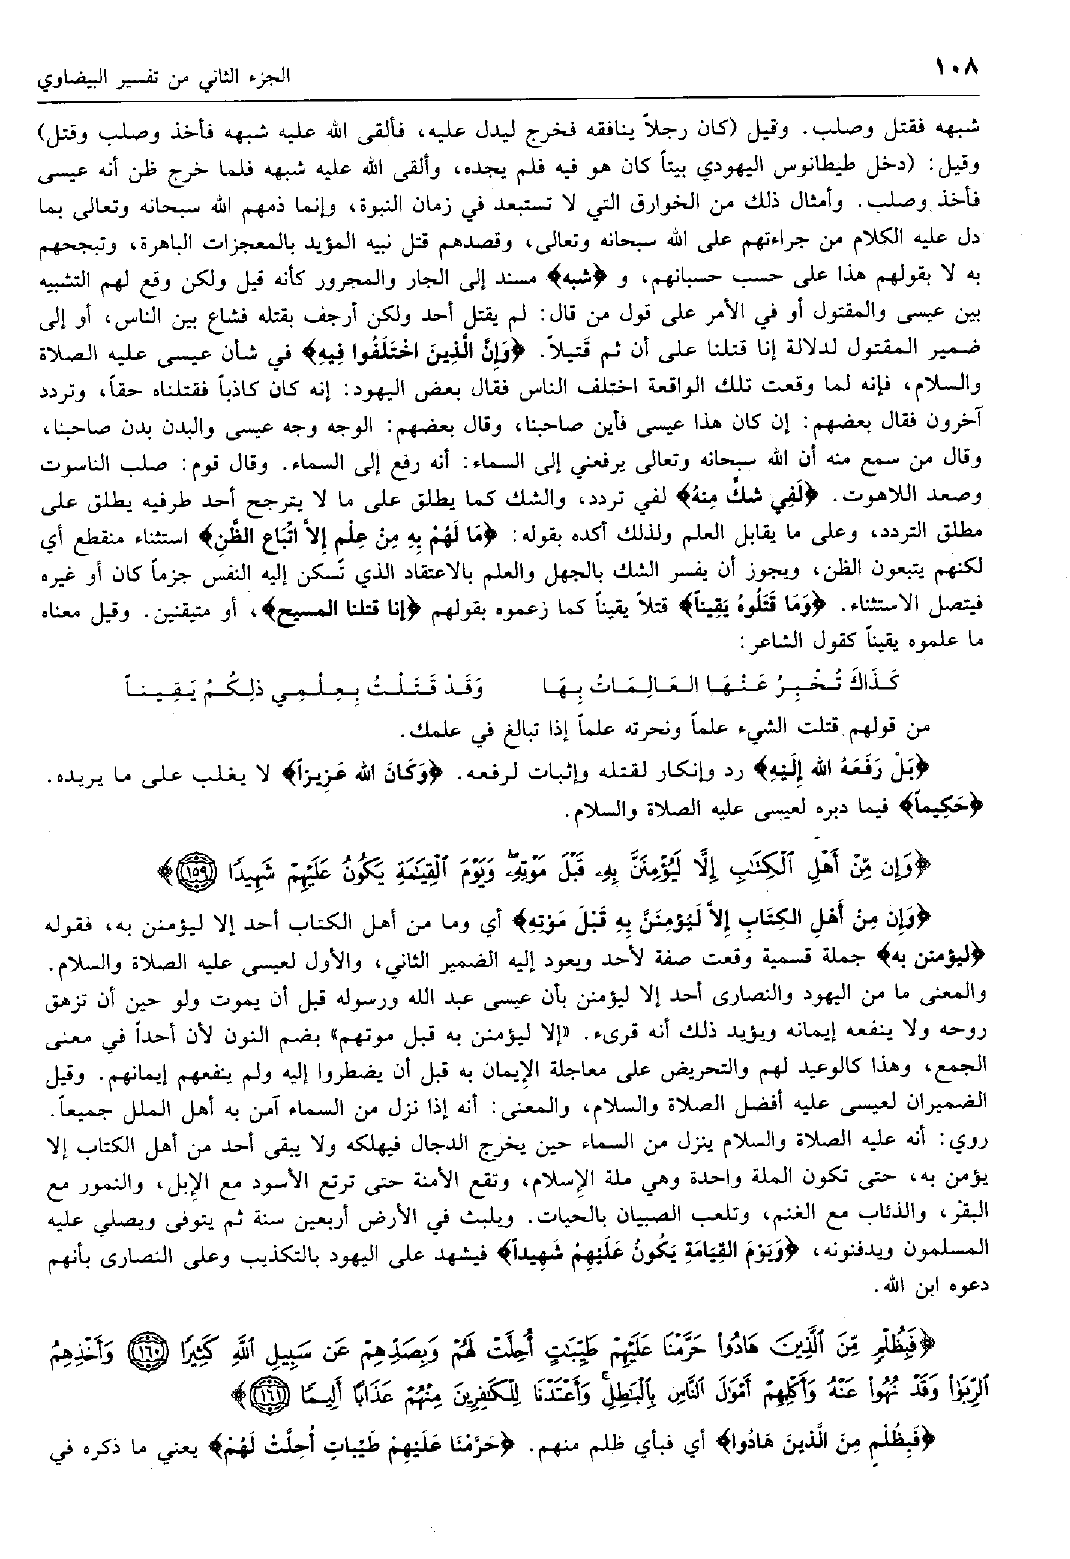 ١٠٨
الجزء الثاني من تفسير البيضاوي
شبهه فقتل وصلب. وقيل (كان رجلاً ينافقه فخرج ليدل عليه، فألقى الله عليه شبهه فأخذ وصلب وقتل)
وقيل: (دخل طيطانوس اليهودي بيتاً كان هو فيه فلم يجده، وألقى الله عليه شبهه فلما خرج ظن أنه عيسى
فأخذ وصلب. وأمثال ذلك من الخوارق التي لا تستبعد في زمان النبوة، وإنما ذمهم الله سبحانه وتعالى بما
دل عليه الكلام من جراءتهم على الله سبحانه وتعالى، وقصدهم قتل نبيه المؤيد بالمعجزات الباهرة، وتبجحهم
به لا بقولهم هذا على حسب حسبانهم، و ﴿شبه﴾ مسند إلى الجار والمجرور كأنه قيل ولكن وقع لهم التشبيه
بين عيسى والمقتول أو في الأمر على قول من قال: لم يقتل أحد ولكن أرجف بقتله فشاع بين الناس، أو إلى
ضمير المقتول لدلالة إنا قتلنا على أن ثم قتيلاً. ﴿وَإِنَّ الَّذِينَ اخْتَلَفُوا فِيهِ﴾ في شأن عيسى عليه الصلاة
والسلام، فإنه لما وقعت تلك الواقعة اختلف الناس فقال بعض اليهود: إنه كان كاذباً فقتلناه حقاً، وتردد
آخرون فقال بعضهم: إن كان هذا عيسى فأين صاحبنا، وقال بعضهم: الوجه وجه عيسى والبدن بدن صاحبنا،
وقال من سمع منه أن الله سبحانه وتعالى يرفعني إلى السماء: أنه رفع إلى السماء. وقال قوم: صلب الناسوت
وصعد اللاهوت. ﴿لَفِي شَكٍّ مِنْهُ﴾ لفي تردد، والشك كما يطلق على ما لا يترجح أحد طرفيه يطلق على
مطلق التردد، وعلى ما يقابل العلم ولذلك أكده بقوله: ﴿مَا لَهُمْ بِهِ مِنْ عِلْمٍ إِلاَّ اتْبَاعَ الظَّنِ﴾ استثناء منقطع أي
لكنهم يتبعون الظن، ويجوز أن يفسر الشك بالجهل والعلم بالاعتقاد الذي تسكن إليه النفس جزماً كان أو غيره
فيتصل الاستثناء. ﴿وَمَا قَتَلُوهُ يَقِيناً﴾ قتلاً يقيناً كما زعموه بقولهم ﴿إنا قتلنا المسيح﴾، أو متيقنين. وقيل معناه
ما علموه يقيناً كقول الشاعر:
كَذَاكَ تُخْبِرُ عَنْهَا العَالِمَاتُ بِهَا وَقَدْ قَتَلْتُ بِعِلْمِي ذلِكُمْ يَقِيناً
من قولهم قتلت الشيء علماً ونحرته علماً إذا تبالغ في علمك.
﴿بَلْ رَفَعَهُ الله إِلَيْهِ﴾ رد وإنكار لقتله وإثبات لرفعه. ﴿وَكَانَ الله عَزِيزاً﴾ لا يغلب على ما يريده.
﴿حَكِيماً﴾ فيما دبره لعيسى عليه الصلاة والسلام.
﴿وَإِن مِّنْ أَهْلِ ٱلْكِتَٰبِ إِلَّا لَيُؤْمِنَنَّ بِهِۦ قَبْلَ مَوْتِهِۦۖ وَيَوْمَ ٱلْقِيَٰمَةِ يَكُونُ عَلَيْهِمْ شَهِيدًا ١٥٩﴾
﴿وَإِن مِنْ أَهْلِ الكِتَابِ إِلاَّ لَيُؤْمِنَنَّ بِهِ قَبْلَ مَوْتِهِ﴾ أي وما من أهل الكتاب أحد إلا ليؤمنن به، فقوله
﴿ليؤمنن به﴾ جملة قسمية وقعت صفة لأحد ويعود إليه الضمير الثاني، والأول لعيسى عليه الصلاة والسلام.
والمعنى ما من اليهود والنصارى أحد إلا ليؤمنن بأن عيسى عبد الله ورسوله قبل أن يموت ولو حين أن تزهق
روحه ولا ينفعه إيمانه ويؤيد ذلك أنه قرىء. «إلا ليؤمنن به قبل موتهم» بضم النون لأن أحداً في معنى
الجمع، وهذا كالوعيد لهم والتحريض على معاجلة الإيمان به قبل أن يضطروا إليه ولم ينفعهم إيمانهم. وقيل
الضميران لعيسى عليه أفضل الصلاة والسلام، والمعنى: أنه إذا نزل من السماء آمن به أهل الملل جميعاً.
روي: أنه عليه الصلاة والسلام ينزل من السماء حين يخرج الدجال فيهلكه ولا يبقى أحد من أهل الكتاب إلا
يؤمن به، حتى تكون الملة واحدة وهي ملة الإسلام، وتقع الأمنة حتى ترتع الأسود مع الإبل، والنمور مع
البقر، والذئاب مع الغنم، وتلعب الصبيان بالحيات. ويلبث في الأرض أربعين سنة ثم يتوفى ويصلي عليه
المسلمون ويدفنونه، ﴿وَيَوْمَ القِيَامَةِ يَكُونُ عَلَيْهِمْ شَهِيداً﴾ فيشهد على اليهود بالتكذيب وعلى النصارى بأنهم
دعوه ابن الله.
﴿فَبِظُلْمٍ مِّنَ ٱلَّذِينَ هَادُوا۟ حَرَّمْنَا عَلَيْهِمْ طَيِّبَٰتٍ أُحِلَّتْ لَهُمْ وَبِصَدِّهِمْ عَن سَبِيلِ ٱللَّهِ كَثِيرًا ١٦٠ وَأَخْذِهِمُ
ٱلرِّبَوٰا۟ وَقَدْ نُهُوا۟ عَنْهُ وَأَكْلِهِمْ أَمْوَٰلَ ٱلنَّاسِ بِٱلْبَٰطِلِۚ وَأَعْتَدْنَا لِلْكَٰفِرِينَ مِنْهُمْ عَذَابًا أَلِيمًا ١٦١﴾
﴿فَبِظُلْمٍ مِنَ الَّذِينَ هَادُوا﴾ أي فبأي ظلم منهم. ﴿حَرَّمْنَا عَلَيْهِمْ طَيِّبَاتٍ أُحِلَّتْ لَهُمْ﴾ يعني ما ذكره في